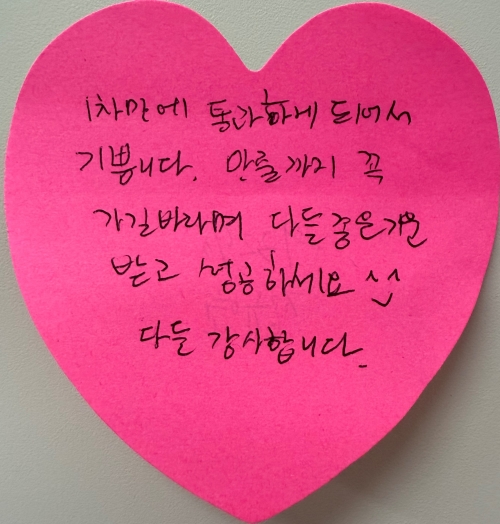 1차만에 통과하게 되어서
기쁩니다. 만료까지 꼭
가길바라며 다들좋은기운
받고 성공하세요 ^^
다들 감사합니다.